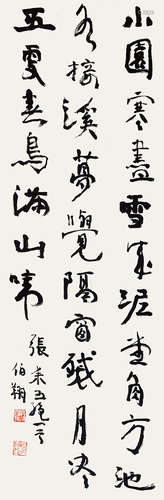 小園寒盡雪成泥堂角方池
水接溪夢覺隔窗殘月盡
五更春鳥滿山啼
張耒五絕一首
伯翔